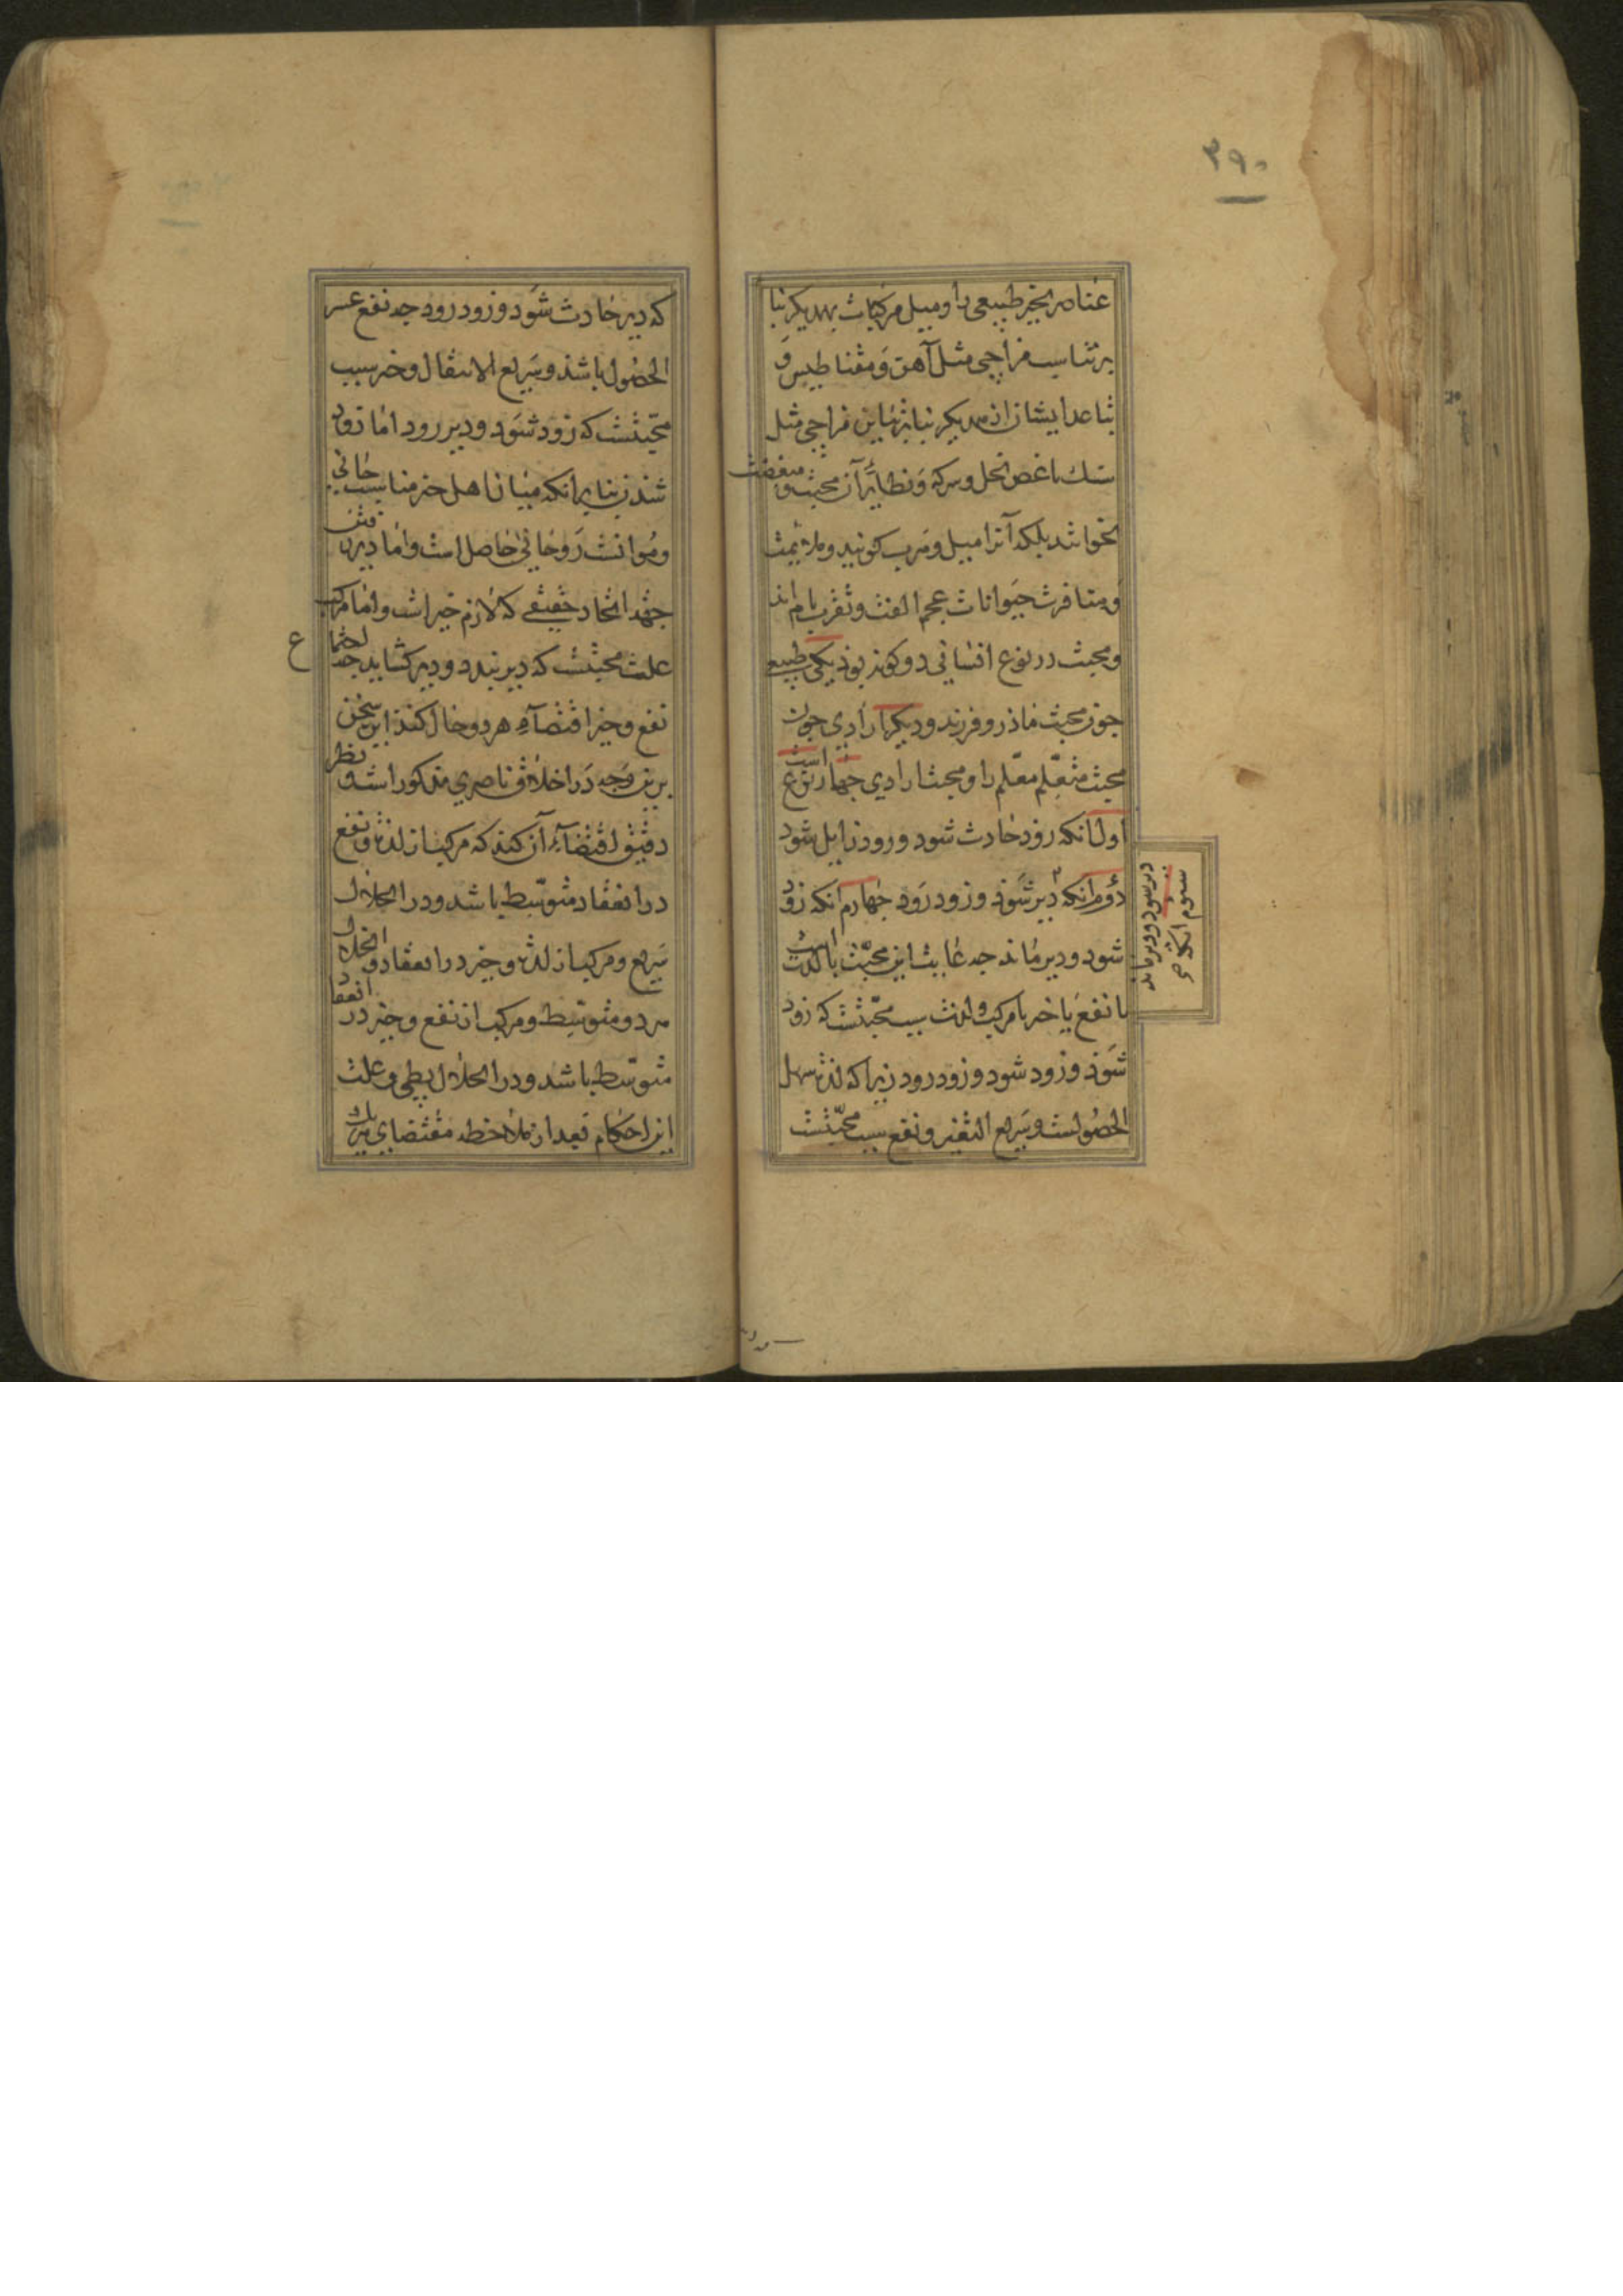 ۳۹۰
عناصر بحیز طبیعی را و میل مرکبات بهمدیکر بنا
بر تناسب مزاجی مثل آهن و مقناطیس و
تباعد ایشان از همدیکر بنا بر تباین مزاجی مثل
سنک باغض الخل و سرکه و نظائر آن محبت و مبغضت
نخوانند بلکه آنرا میل و هرب کویند و ملائمت
و منافرت حیوانات عجم الفت و نفرت نامند
و محبت در نوع انسانی دو کونه بود یکی طبیعی
چون محبت مادر و فرزند و دیکر ارادی چون
محبت متعلم معلم را و محبت ارادی چهار نوع است
اول آنکه زود حادث شود و زود زایل شود
دوم آنکه دیر شود و زود رود چهارم آنکه زود
سیوم آنکه
دیر شود و دیر ماند
شود و دیر ماند چه غایت این محبت یا لذت است
یا نفع یا خیر یا مرکب و لذت سبب محبتست که زود
شود و زود شود و زود رود زیرا که لذت سهل
الحصولست و سریع التغیر و نفع سبب محبتست
که دیر حادث شود و زود رود چه نفع عسر
الحصول باشد و سریع الانتقال و خیر سبب
محبتست که زود شود و دیر رود اما زود
شدن بنا برانکه میان اهل خیر مناسبت جانی
و موانست روحانی حاصل است و اما دیر رفتن
جهة اتحاد حقیقی که لازم خیر است و اما مرکب
علت محبتست که دیر بندد و دیر کشاید چه اجتماع
نفع و خیر اقتضاء هر دو حال کند این سخن
برین وجه در اخلاق ناصری مذکور است و نظر
دقیق اقتضاء آن کند که مرکب از لذت و نفع
در انعقاد متوسط باشد و در انحلال
سریع و مرکب از لذت و خیر در انعقاد و انحلال
هر دو متوسط و مرکب از نفع و خیر در انعقاد
متوسط باشد و در انحلال بطی و علت
این احکام بعد از ملاحظه مقتضای هر یک